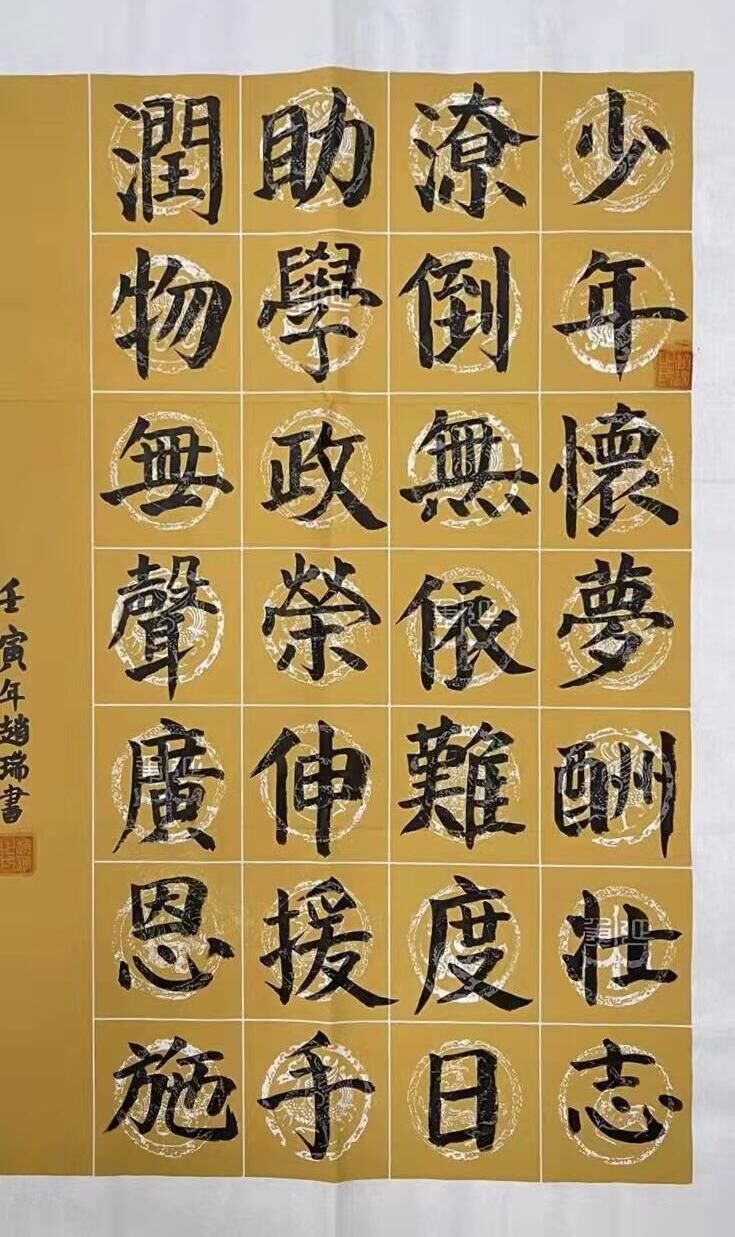 少年懷夢酬壯志
潦倒無依難度日
助學政榮伸援手
潤物無聲廣恩施
壬寅年趙瑞書